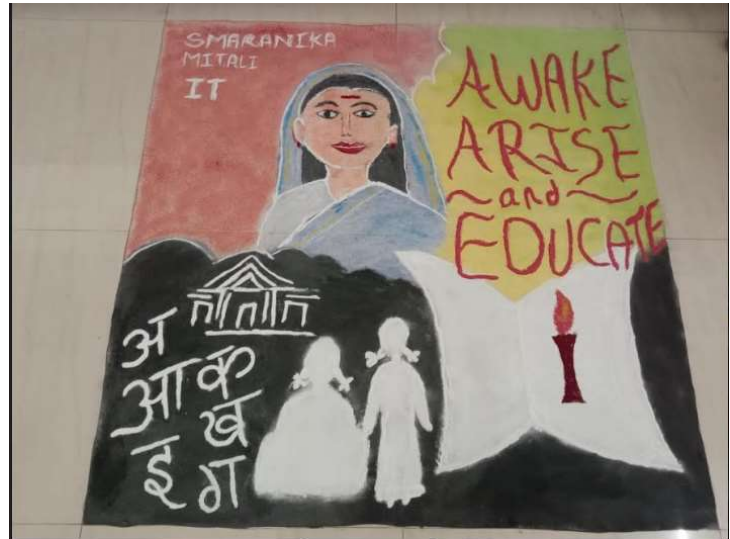 SMARANIKA
MITALI
IT
AWAKE
ARISE
~and~
EDUCATE
अ
आ
इ
क
ख
ग